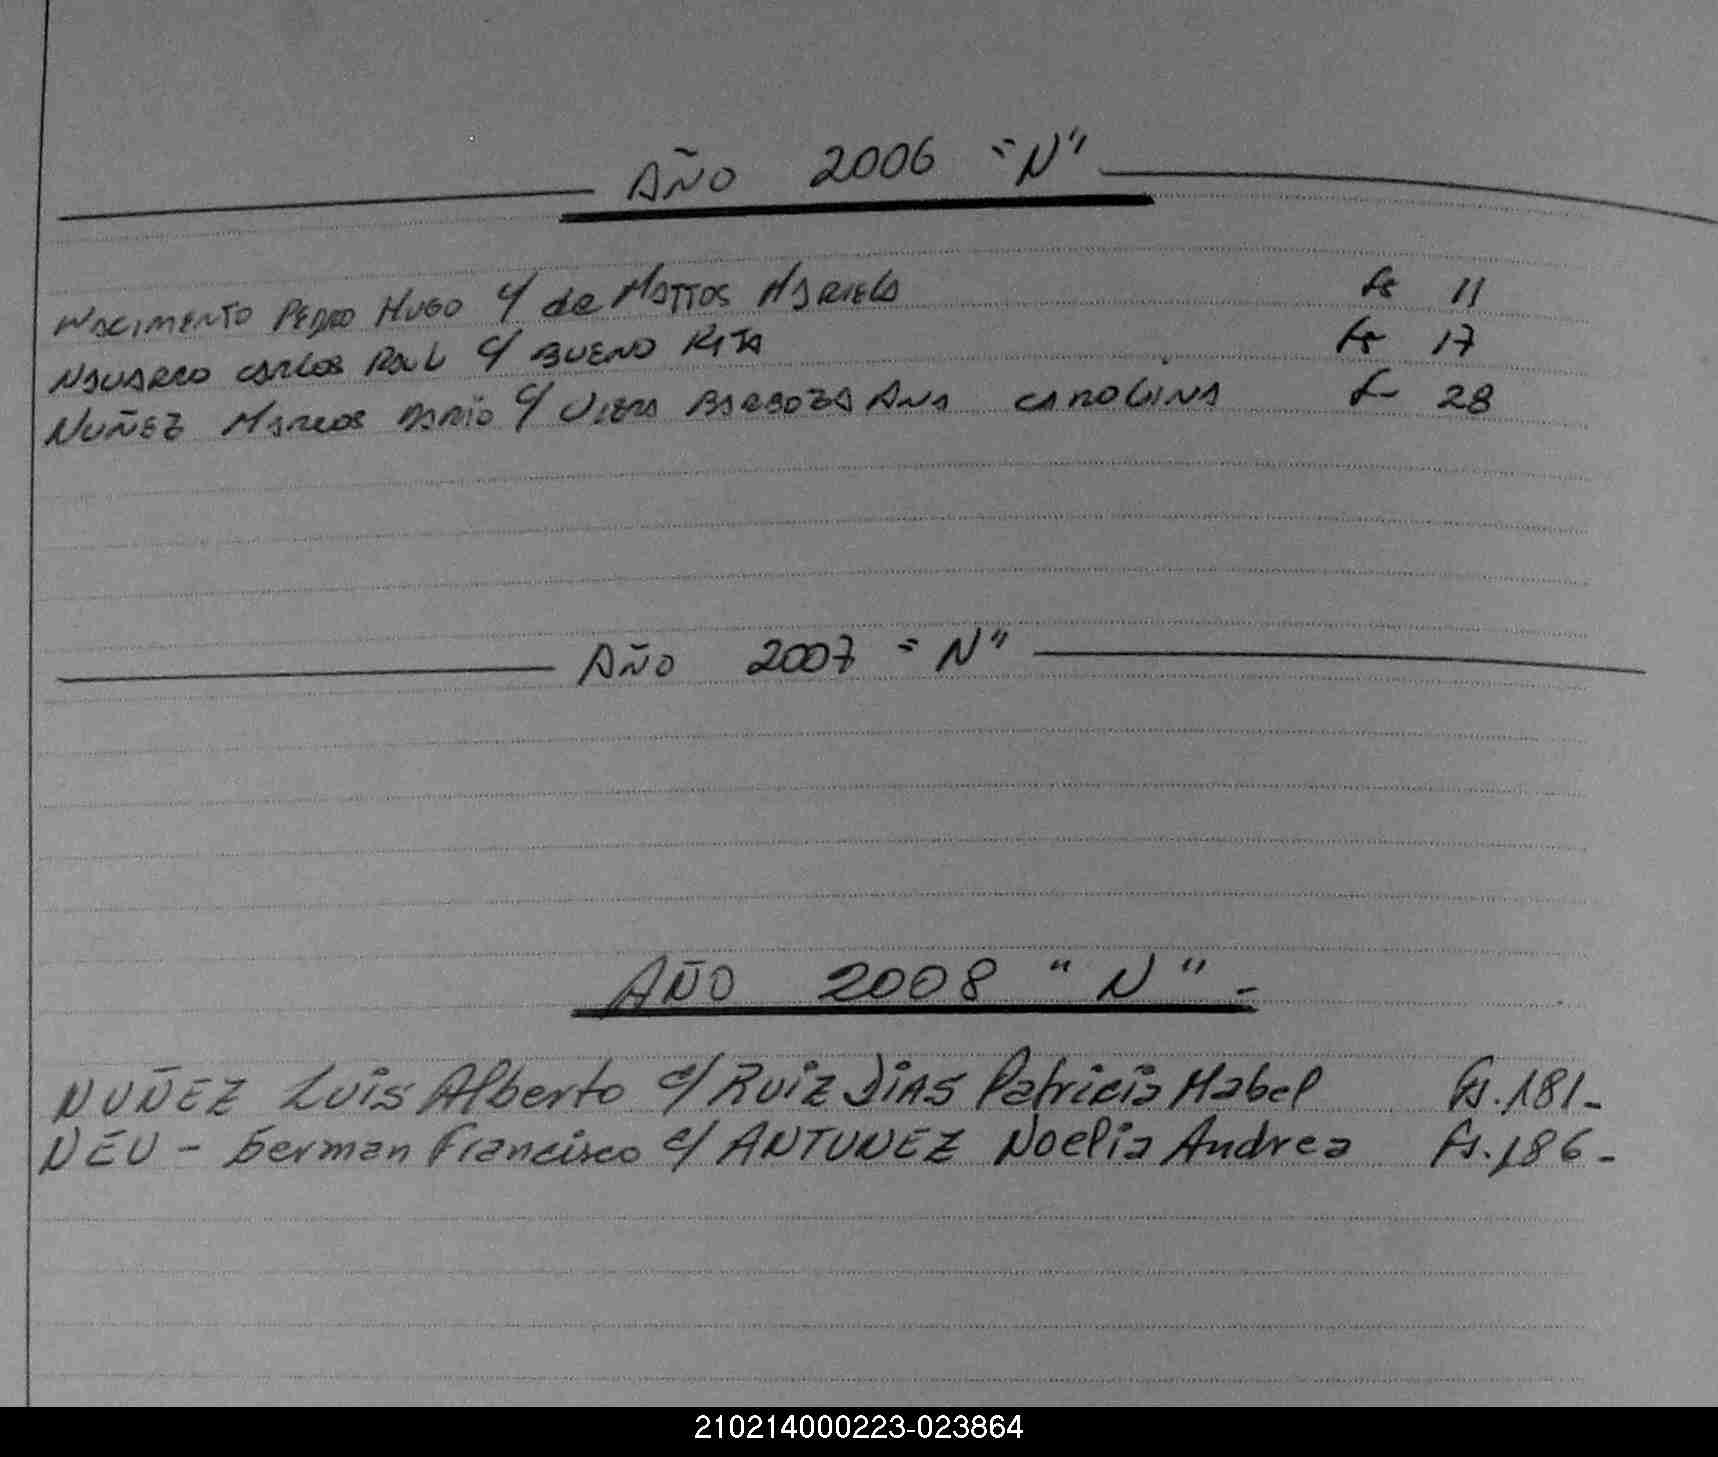 AÑO 2006 "N"
NACIMENTO PEDRO HUGO c/ de MATTOS MARIELA fs 11
NAVARRO CARLOS RAUL c/ BUENO RITA fs 17
NUÑEZ MARCOS DARIO c/ VIERA BARBOZA ANA CAROLINA fs 28
AÑO 2007 "N"
AÑO 2008 "N" -
NUÑEZ Luis Alberto c/ RUIZ DIAS Patricia Mabel Fs. 181-
NEU - German Francisco c/ ANTUNEZ Noelia Andrea Fs. 186-
210214000223-023864